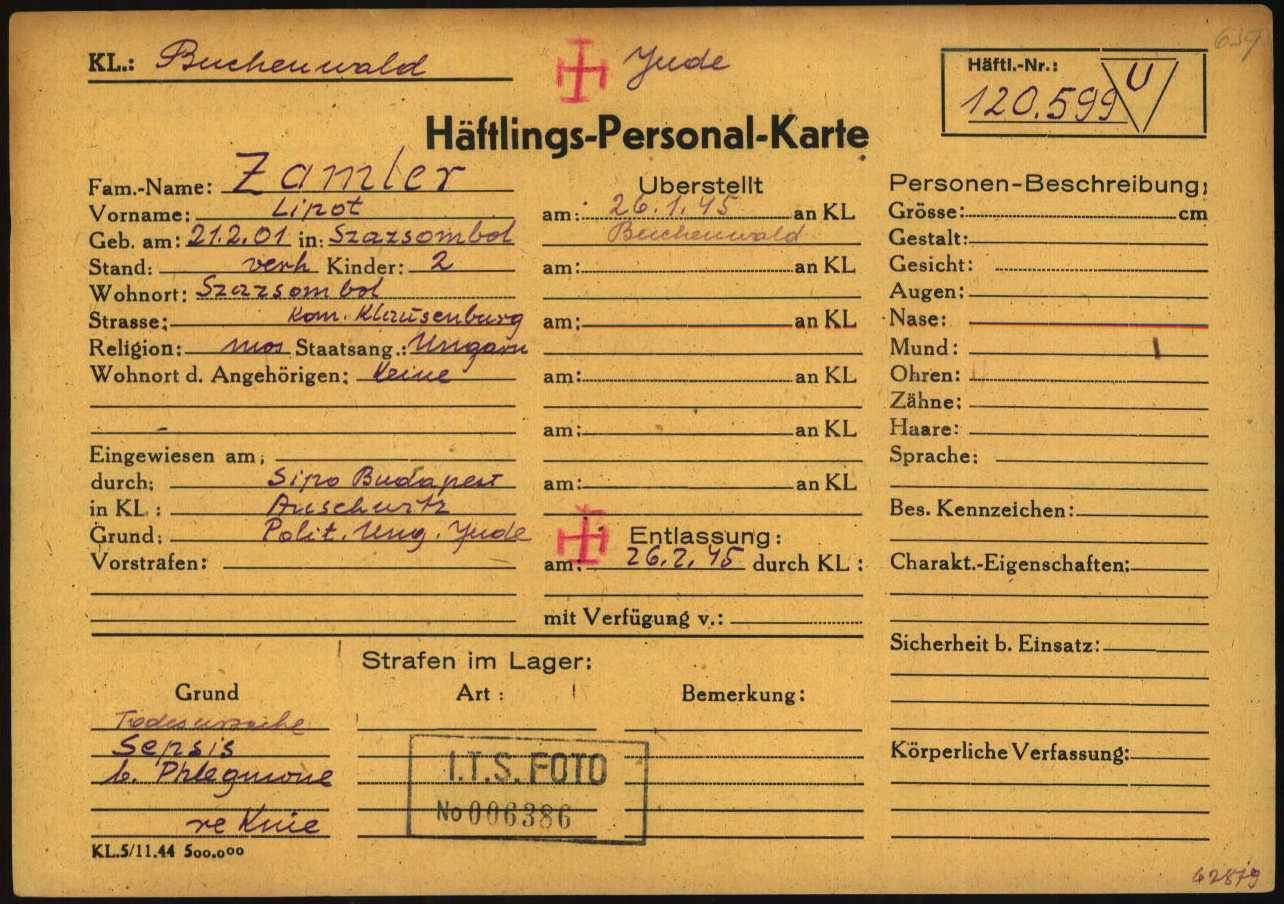 639
KL.: Buchenwald Jude
Häftl.-Nr.: U
120.599
Häftlings-Personal-Karte
Fam.-Name: Zamler
Vorname: Lipot
Geb. am: 21.2.01 in: Szazsombol
Stand: verh Kinder: 2
Wohnort: Szazsombol
Strasse: Kom. Klausenburg
Religion: mos Staatsang.: Ungarn
Wohnort d. Angehörigen: Keine
Eingewiesen am:
durch: Sipo Budapest
in KL: Auschwitz
Grund: Polit. Ung. Jude
Vorstrafen:
Überstellt
am: 26.1.45 an KL
Buchenwald
am: an KL
am: an KL
am: an KL
am: an KL
am: an KL
Entlassung:
am: 26.2.45 durch KL:
mit Verfügung v.:
Personen-Beschreibung:
Grösse: cm
Gestalt:
Gesicht:
Augen:
Nase:
Mund:
Ohren:
Zähne:
Haare:
Sprache:
Bes. Kennzeichen:
Charakt.-Eigenschaften:
Sicherheit b. Einsatz:
Körperliche Verfassung:
Strafen im Lager:
Grund Art: Bemerkung:
Todesursache
Sepsis
b. Phlegmone
re Knie
I.T.S. FOTO
No 006386
KL.5/11.44 500.000
62879